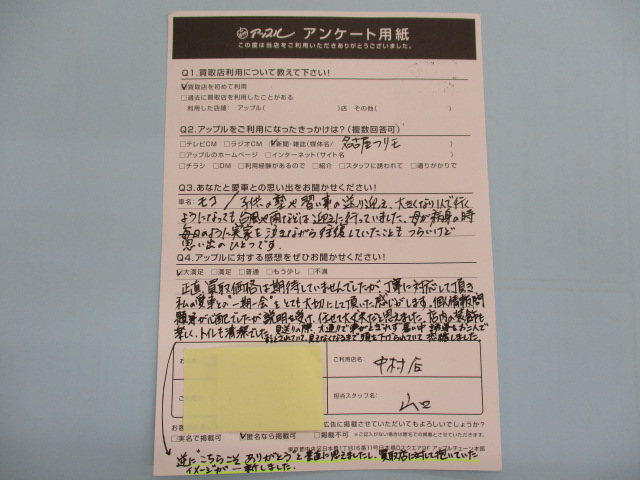 アップル アンケート用紙
この度は当店をご利用いただきありがとうございました。
Q1.買取店利用について教えて下さい!
☑買取店を初めて利用
□過去に買取店を利用したことがある
利用した店舗: アップル( )店 その他( )
Q2.アップルをご利用になったきっかけは?(複数回答可)
□テレビCM □ラジオCM ☑新聞・雑誌(媒体名/ 名古屋フリモ )
□アップルのホームページ □インターネット(サイト名 )
□チラシ □DM □利用経験があるので □紹介 □スタッフに誘われて □通りがかりで
Q3.あなたと愛車との思い出をお聞かせください!
車名: モコ / 子供の塾や習い事の送り迎え、大きくなり1人で行く
ようになっても台風や雨などは迎えに行っていました。母が病身の時
毎日のように実家を泣きながら往復していたこともつらいけど
思い出のひとつです。
Q4.アップルに対する感想をぜひお聞かせください!
☑大満足 □満足 □普通 □もう少し □不満
正直買取価格は期待していませんでしたが、丁寧に対応して頂き
私の愛車との"一期一会"をとても大切にして頂いた感じがします。個人情報問
題等が心配でしたが説明を受け、任せて大丈夫だと思えました。店内の装飾も
楽しく、トイレも清潔でした。見送りの際、大通りで車がとぎれず暑い中
見えなくなるまで頭を下げられていて恐縮しました。
ご利用店名:
中村店
担当スタッフ名:
山口
広告に掲載させていただいてもよろしいでしょうか?
□実名で掲載可 ☑匿名なら掲載可 □掲載不可 ※ご記入がない場合は匿名での掲載とさせていただきます。
東京都中央区日本橋1丁目16番11号日本橋Dスクエア9F アップルチェーン本部
逆に"こちらこそ ありがとう"と素直に思えましたし、買取店に対して抱いていた
イメージが一新しました。